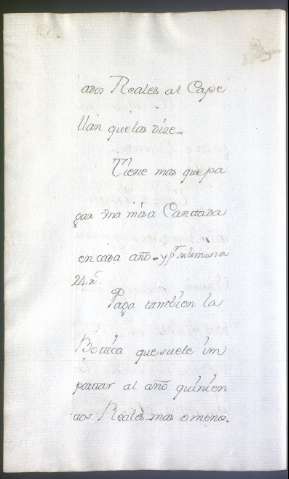 atros Reales al Cape
llan que las dize.
Tiene mas que pa
gar una misa Cantada
en cada año - y
24 rs
Paga tambien la
Botica que suele im
portar al año quinien
tos Reales mas o menos.